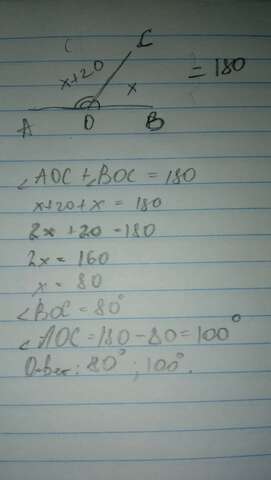 C
C
x+20
x
= 180
A O B
∠AOC + ∠BOC = 180
x+20+x = 180
2x +20 = 180
2x = 160
x = 80
∠BOC = 80°
∠AOC = 180 - 80 = 100°
Ответ: 80° ; 100°.